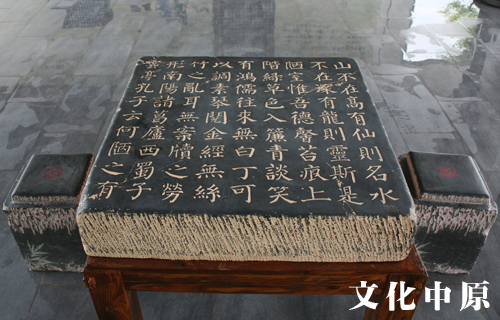 山不在高有仙則名水
不在深有龍則靈斯是
陋室惟吾德馨苔痕上
階綠草色入簾青談笑
有鴻儒往來無白丁可
以調素琴閱金經無絲
竹之亂耳無案牘之勞
形南陽諸葛廬西蜀子
雲亭孔子云何陋之有
文化中原